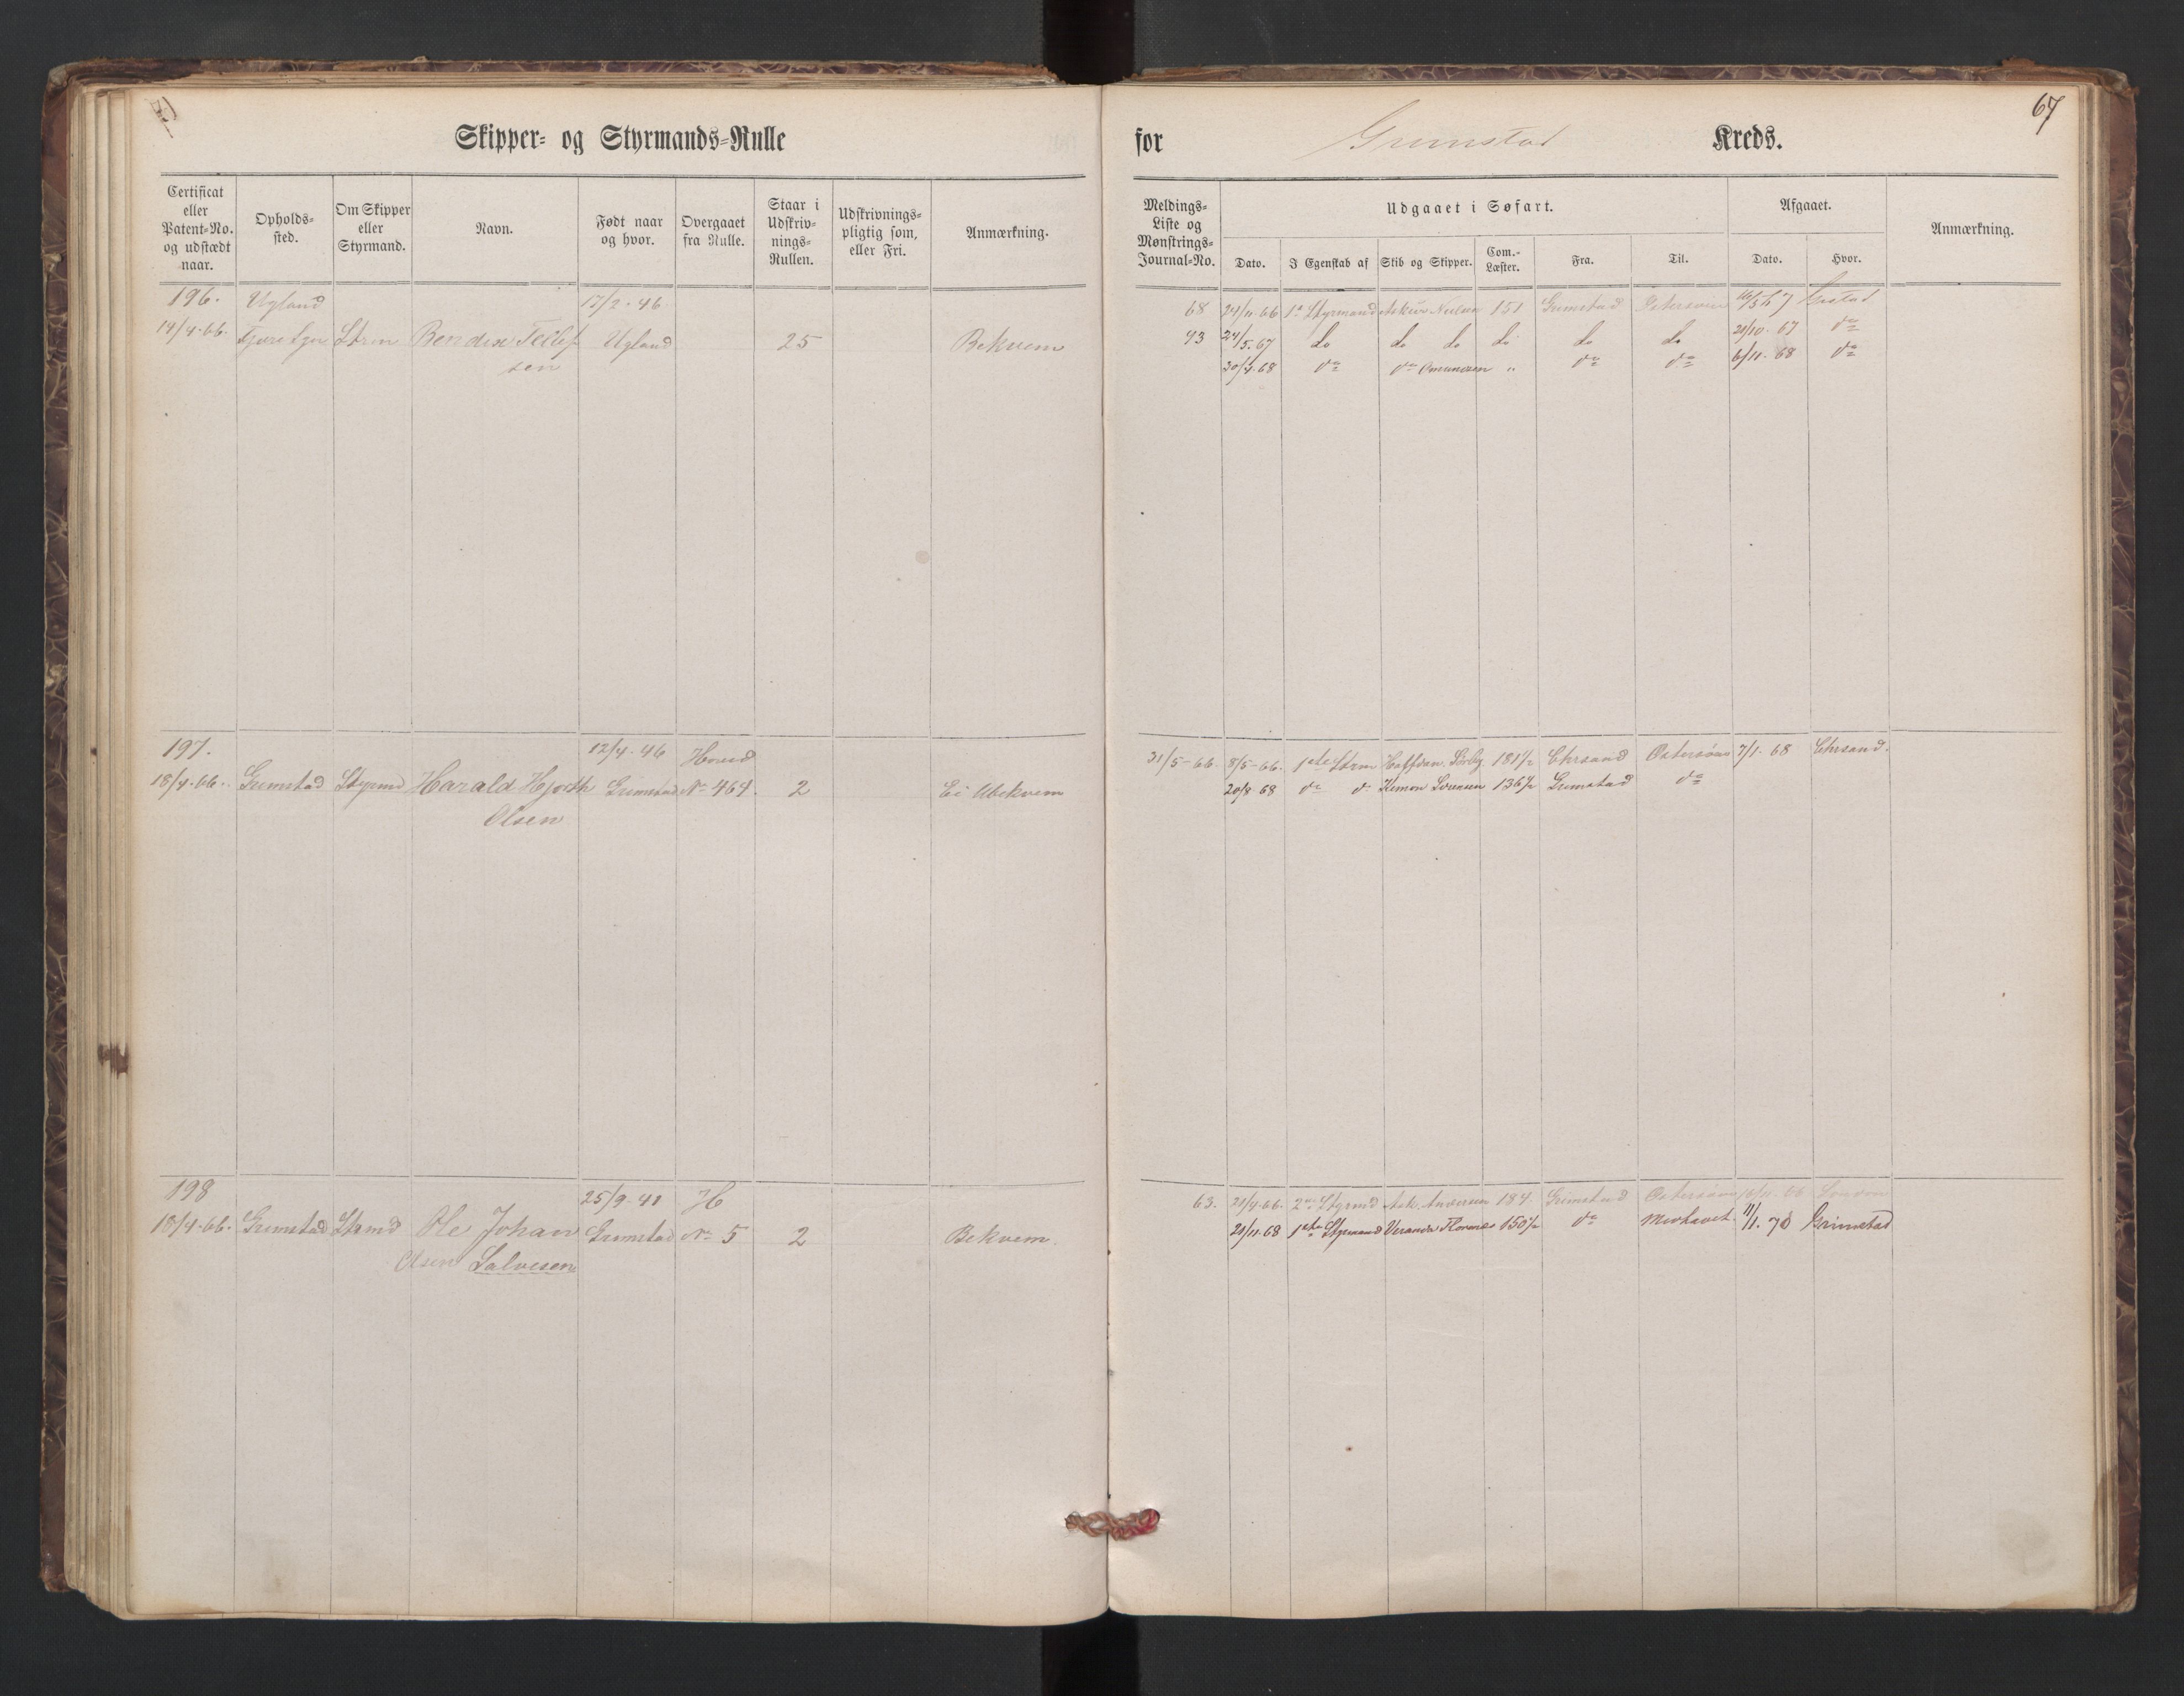 67
Skipper- og Styrmands-Rulle for Grimstad Kreds.
Certificat eller Patent-No. og udstædt naar.
Opholds-sted.
Om Skipper eller Styrmand.
Navn.
Født naar og hvor.
Overgaaet fra Rulle.
Staar i Udskriv-nings-Rullen.
Udskrivnings-pligtig som, eller Fri.
Anmærkning.
Meldings-Liste og Mønstrings-Journal-No.
Udgaaet i Søfart.
Dato.
I Egenskab af
Skib og Skipper.
Com.-Læster.
Fra.
Til.
Afgaaet.
Dato.
Hvor.
Anmærkning.
196. Ugland 17/2-46.
14/4-66. Strm Bendix Tellef Ugland 25 Bekvem
sen
68 24/11 66 1e Styrmand Askur Nielsen 151 Grimstad Østersøen Gmstad
93 24/5.67 do do do do do do 21/10-67 do
30/4.68 do do Omundsen " do do 6/11-68 do
197. 12/4-46 Hoved
18/4-66. Grimstad Styrmd Harald Hjorth Grimstad No 464. 2 Ei Ubekvem
Olsen
31/5-66. 8/5-66. 1ste Strm Halfdan. 181 1/2 Chrsand Østersøen 7/1-68 Chrsand.
20/8 68 do do Kemon Sørensen 136 1/2 Grimstad do
198 25/9-41 H
18/4-66. Grimstad Strmd Ole Johan Grimstad No 5 2 Bekvem.
Olsen Salvesen
63. 21/4-66. 2den Styrmd Ask. Andersen 184. Grimstad Østersøen London
21/11-68 1ste Styrmand Veranda 150 1/2 do 11/1. 70 Grimstad